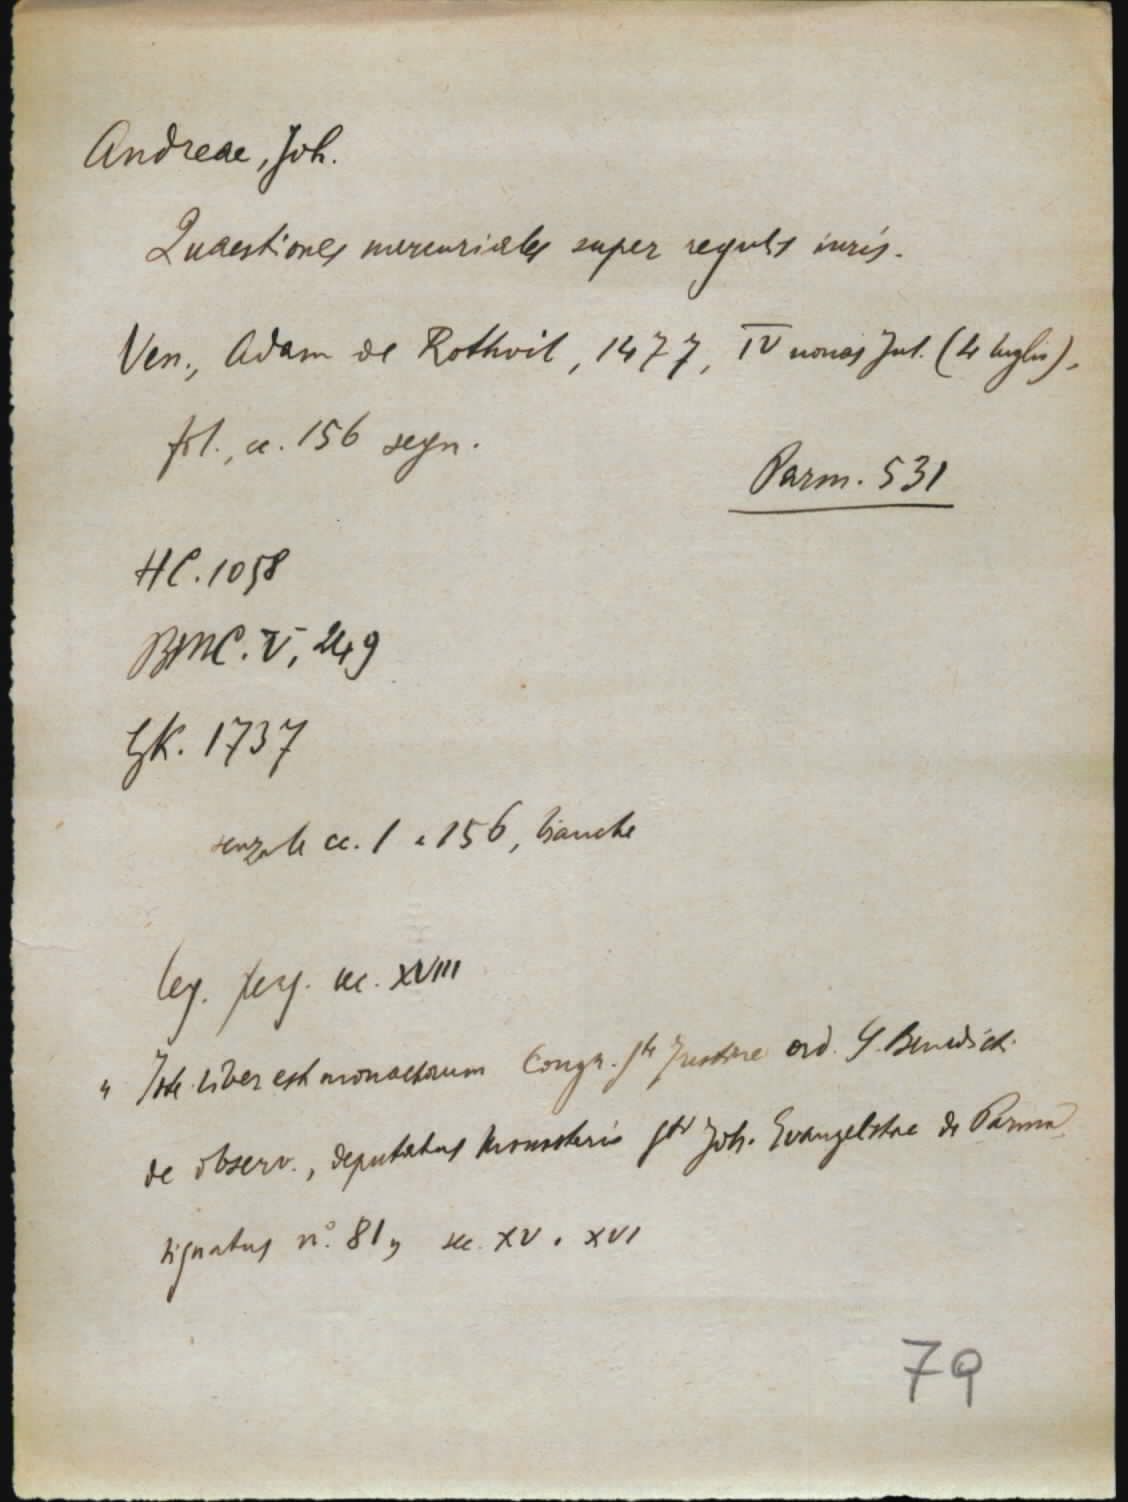 Andreae, Joh.
Quaestiones mercuriales super regulis iuris.
Ven., Adam de Rothvil, 1477, IV nonas Jul. (4 luglio),
fol., cc. 156 segn.
Parm. 531
HC. 1058
BMC. V, 249
GK. 1737
senza le cc. 1 e 156, bianche
leg. perg. sec. XVIII
" Iste liber est monachorum Congr. Ste Justine ord. S. Benedicti
de observ., deputatus Monasterio Sti Joh. Evangelistae de Parma
signatus n.° 81 " sec. XV . XVI
79